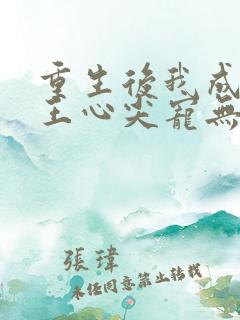 重生後我成
王心尖寵無
張瑋
未任同意禁止转载